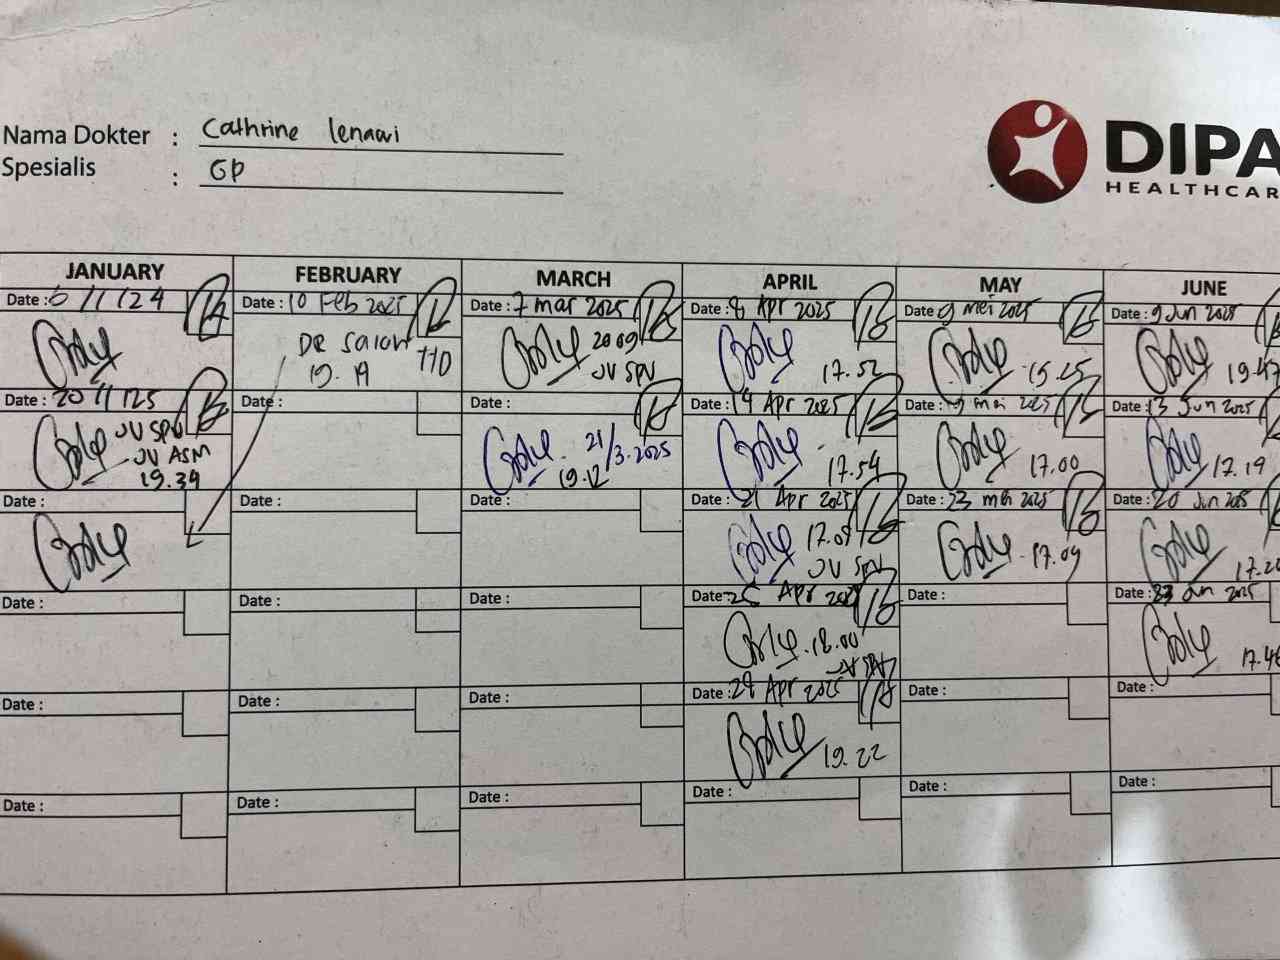 Nama Dokter : Cathrine lenawi
Spesialis : GP
DIPA
HEALTHCAR
JANUARY FEBRUARY MARCH APRIL MAY JUNE
Date : 6/1/24
Date : 10 Feb 2025
DR Salah
19.19
Date : 7 mar 2025
20 09
JV SPV
Date : 8 Apr 2025
17.52
Date 9 mei 2025
15.25
Date : 9 Jun 2025
19.47
Date : 20/1/25
JV SPV
JV ASM
19.34
Date :
Date :
21/3.2025
19.12
Date : 14 Apr 2025
17.54
Date : 19 mei 2025
17.00
Date : 13 Jun 2025
17.19
Date :
Date :
Date :
Date : 21 Apr 2025
JV SPV
Date : 23 mei 2025
17.09
Date : 20 Jun 2025
Date :
Date :
Date :
Date Apr 2025
18.00
Date :
Date : 2025
Date :
Date :
Date :
Date : Apr 2025
19.22
Date :
Date :
Date :
Date :
Date :
Date :
Date :
Date :